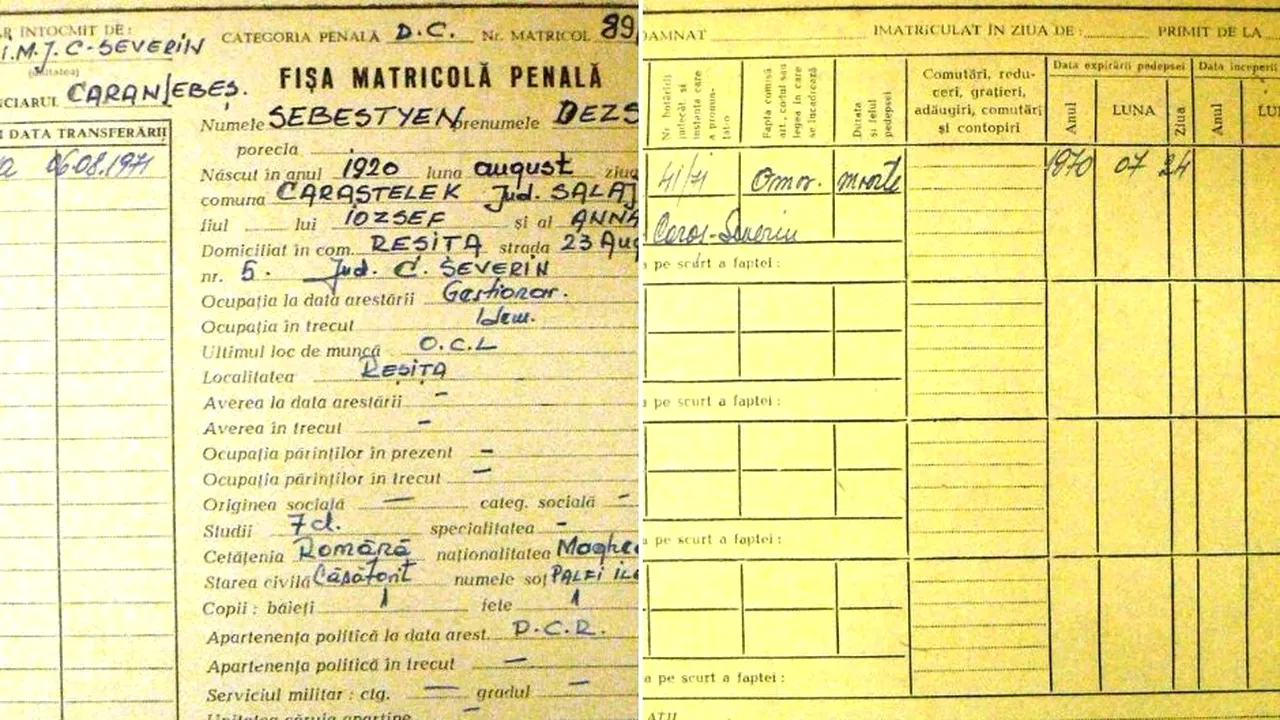 R INTOCMIT DE:
I.M.J. C-SEVERIN
CARANSEBEȘ.
DATA TRANSFERĂRII
06.08.1971
CATEGORIA PENALĂ D.C. Nr. MATRICOL 89
FIȘA MATRICOLĂ PENALĂ
Numele SEBESTYEN prenumele DEZS
porecla
Născut în anul 1920 luna august ziu
comuna CARASTELEK Jud. SALAJ
fiul lui IOZSEF și al ANNA
Domiciliat în com. RESITA strada 23 Aug
nr. 5. Jud. C. SEVERIN
Ocupația la data arestării Gestionar.
Ocupația în trecut Idem.
Ultimul loc de muncă O.C.L
Localitatea REȘITA
Averea la data arestării -
Averea în trecut -
Ocupația părinților în prezent -
Ocupația părinților în trecut -
Originea socială - categ. socială -
Studii 7 cl. specialitatea -
Cetățenia Română naționalitatea Maghe
Starea civilă Căsătorit numele soț PALFI ILO
Copii : băieți 1 fete 1
Apartenența politică la data arest. P.C.R.
Apartenența politică în trecut -
Serviciul militar : ctg. - gradul -
Unitatea căruia aparține -
DAMNAT IMATRICULAT ÎN ZIUA DE : PRIMIT DE LA
Nr. hotărîrii
judecăt. și
instanța care
a pronun-
țat-o
Fapta comisă
art., codul sau
legea în care
se încadrează
Durata
și felul
pedepsei
Comutări, redu-
ceri, grațieri,
adăugiri, comutări
și contopiri
Data expirării pedepsei
Anul LUNA Ziua
Data începerii
Anul LU
41/71 Omor. moarte 1970 07 24
Caraș-Severin
a pe scurt a faptei :
a pe scurt a faptei :
a pe scurt a faptei :
a pe scurt a faptei :